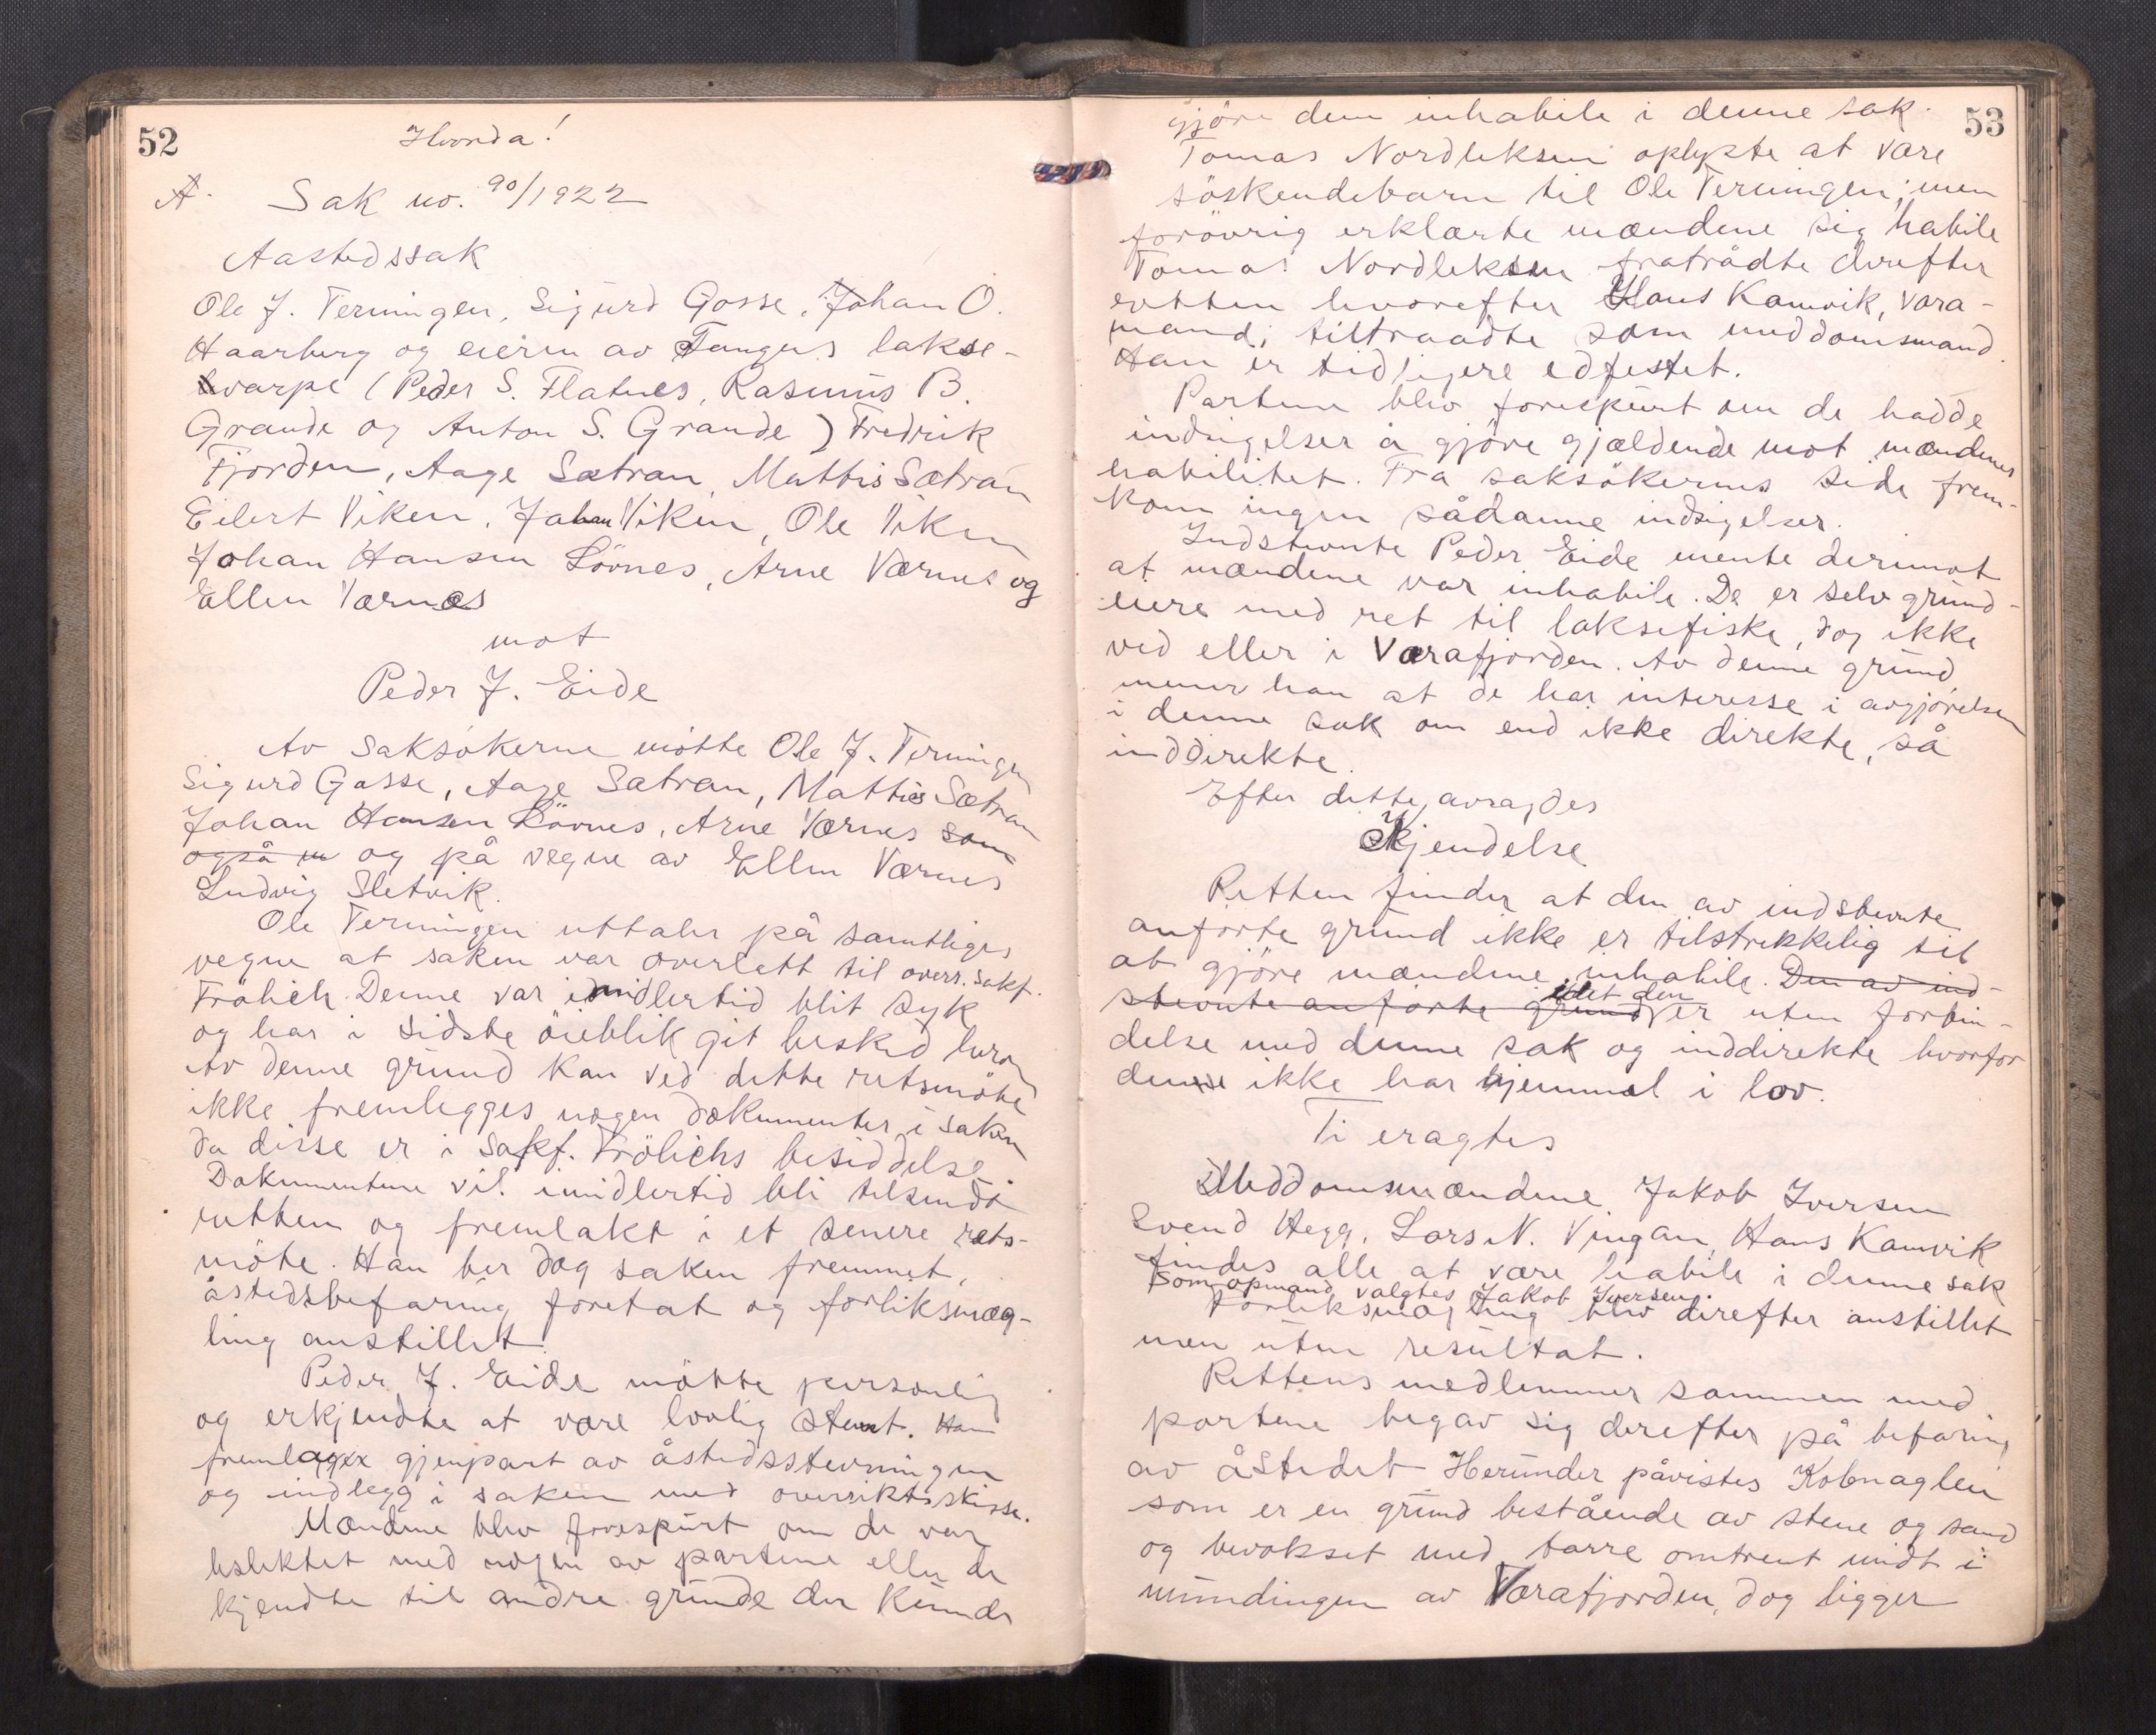 52
Hvorda!
A. Sak no. 90/1922
Aastedssak
Ole J. Terningen, Sigurd Gosse, Johan O.
Haarberg og eieren av Tangens lakse-
varpe (Peder S. Flatnes, Rasmus B.
Grande og Anton S. Grande) Fredrik
Fjorden, Aage Sætran, Mattis Sætran
Eilert Viken, Johan Viken, Ole Viken
Johan Hansen Lövnes, Arne Værnes og
Ellen Værnes
mot
Peder J. Eide
Av saksökerne mötte Ole J. Terningen
Sigurd Gosse, Aage Sætran, Mattis Sætran
Johan Hansen Lövnes, Arne Værnes som
også m og på vegne av Ellen Værnes
Ludvig Sletvik.
Ole Terningen uttaler på samtliges
vegne at saken var overlatt til overr. sakf.
Frölich. Denne var imidlertid blit syk
og har i sidste öieblik git besked herom
Av denne grund kan ved dette retsmöte
ikke fremlegges nogen dokumenter i saken
da disse er i sakf. Frölichs besiddelse.
Dokumentene vil imidlertid bli tilsendt
retten og fremlakt i et senere rets-
möte. Han ber dog saken fremmet,
åstedsbefaring foretat og forliksmæg-
ling anstillet.
Peder J. Eide mötte personlig
og erkjendte at være lovlig stevnt. Han
fremlager gjenpart av åstedsstevningen
og indlegg i saken med oversiktsskisse.
Mændene blev forespurt om de var
beslektet med nogen av partene eller de
kjendte til andre grunde der kunde
53
gjöre dem inhabile i denne sak.
Tomas Nordleksen oplyste at være
söskendebarn til Ole Terningen; men
forövrig erklærte mændene sig habile
Tomas Nordleksen fratrådte derefter
retten hvorefter Hans Kamvik, vara-
mand, tiltraadte som meddomsmand.
Han er tidligere edfestet.
Partene blev forespurt om de hadde
indsigelser å gjöre gjældende mot mændenes
habilitet. Fra saksökernes side frem-
kom ingen sådanne indsigelser.
Indstevnte Peder Eide mente derimot
at mændene var inhabile. De er selv grund-
eiere med ret til laksefiske, dog ikke
ved eller i Værafjorden. Av denne grund
mener han at de har interesse i avgjörelsen
i denne sak om end ikke direkte, så
inddirekte.
Efter dette avsagdes
Kjendelse
Retten finder at den av indstevnte
anförte grund ikke er tilstrekkelig til
at gjöre mændene inhabile. Den av ind-
stevnte anförte grund idet den er uten forbin-
delse med denne sak og inddirekte hvorfor
denne ikke har hjemmel i lov.
Ti eragtes
Meddomsmændene Jakob Iversen
Svend Hegg, Lars N. Vingan, Hans Kamvik
findes alle at være habile i denne sak
Som opmand valgtes Jakob Iversen.
Forliksmægling blev derefter anstillet
men uten resultat.
Rettens medlemmer sammen med
partene begav sig derefter på befaring
av åstedet. Herunder påvistes Kobnaglen
som er en grund bestående av stene og sand
og bevokset med tarre omtrent midt i
mundingen av Værafjorden, dog ligger